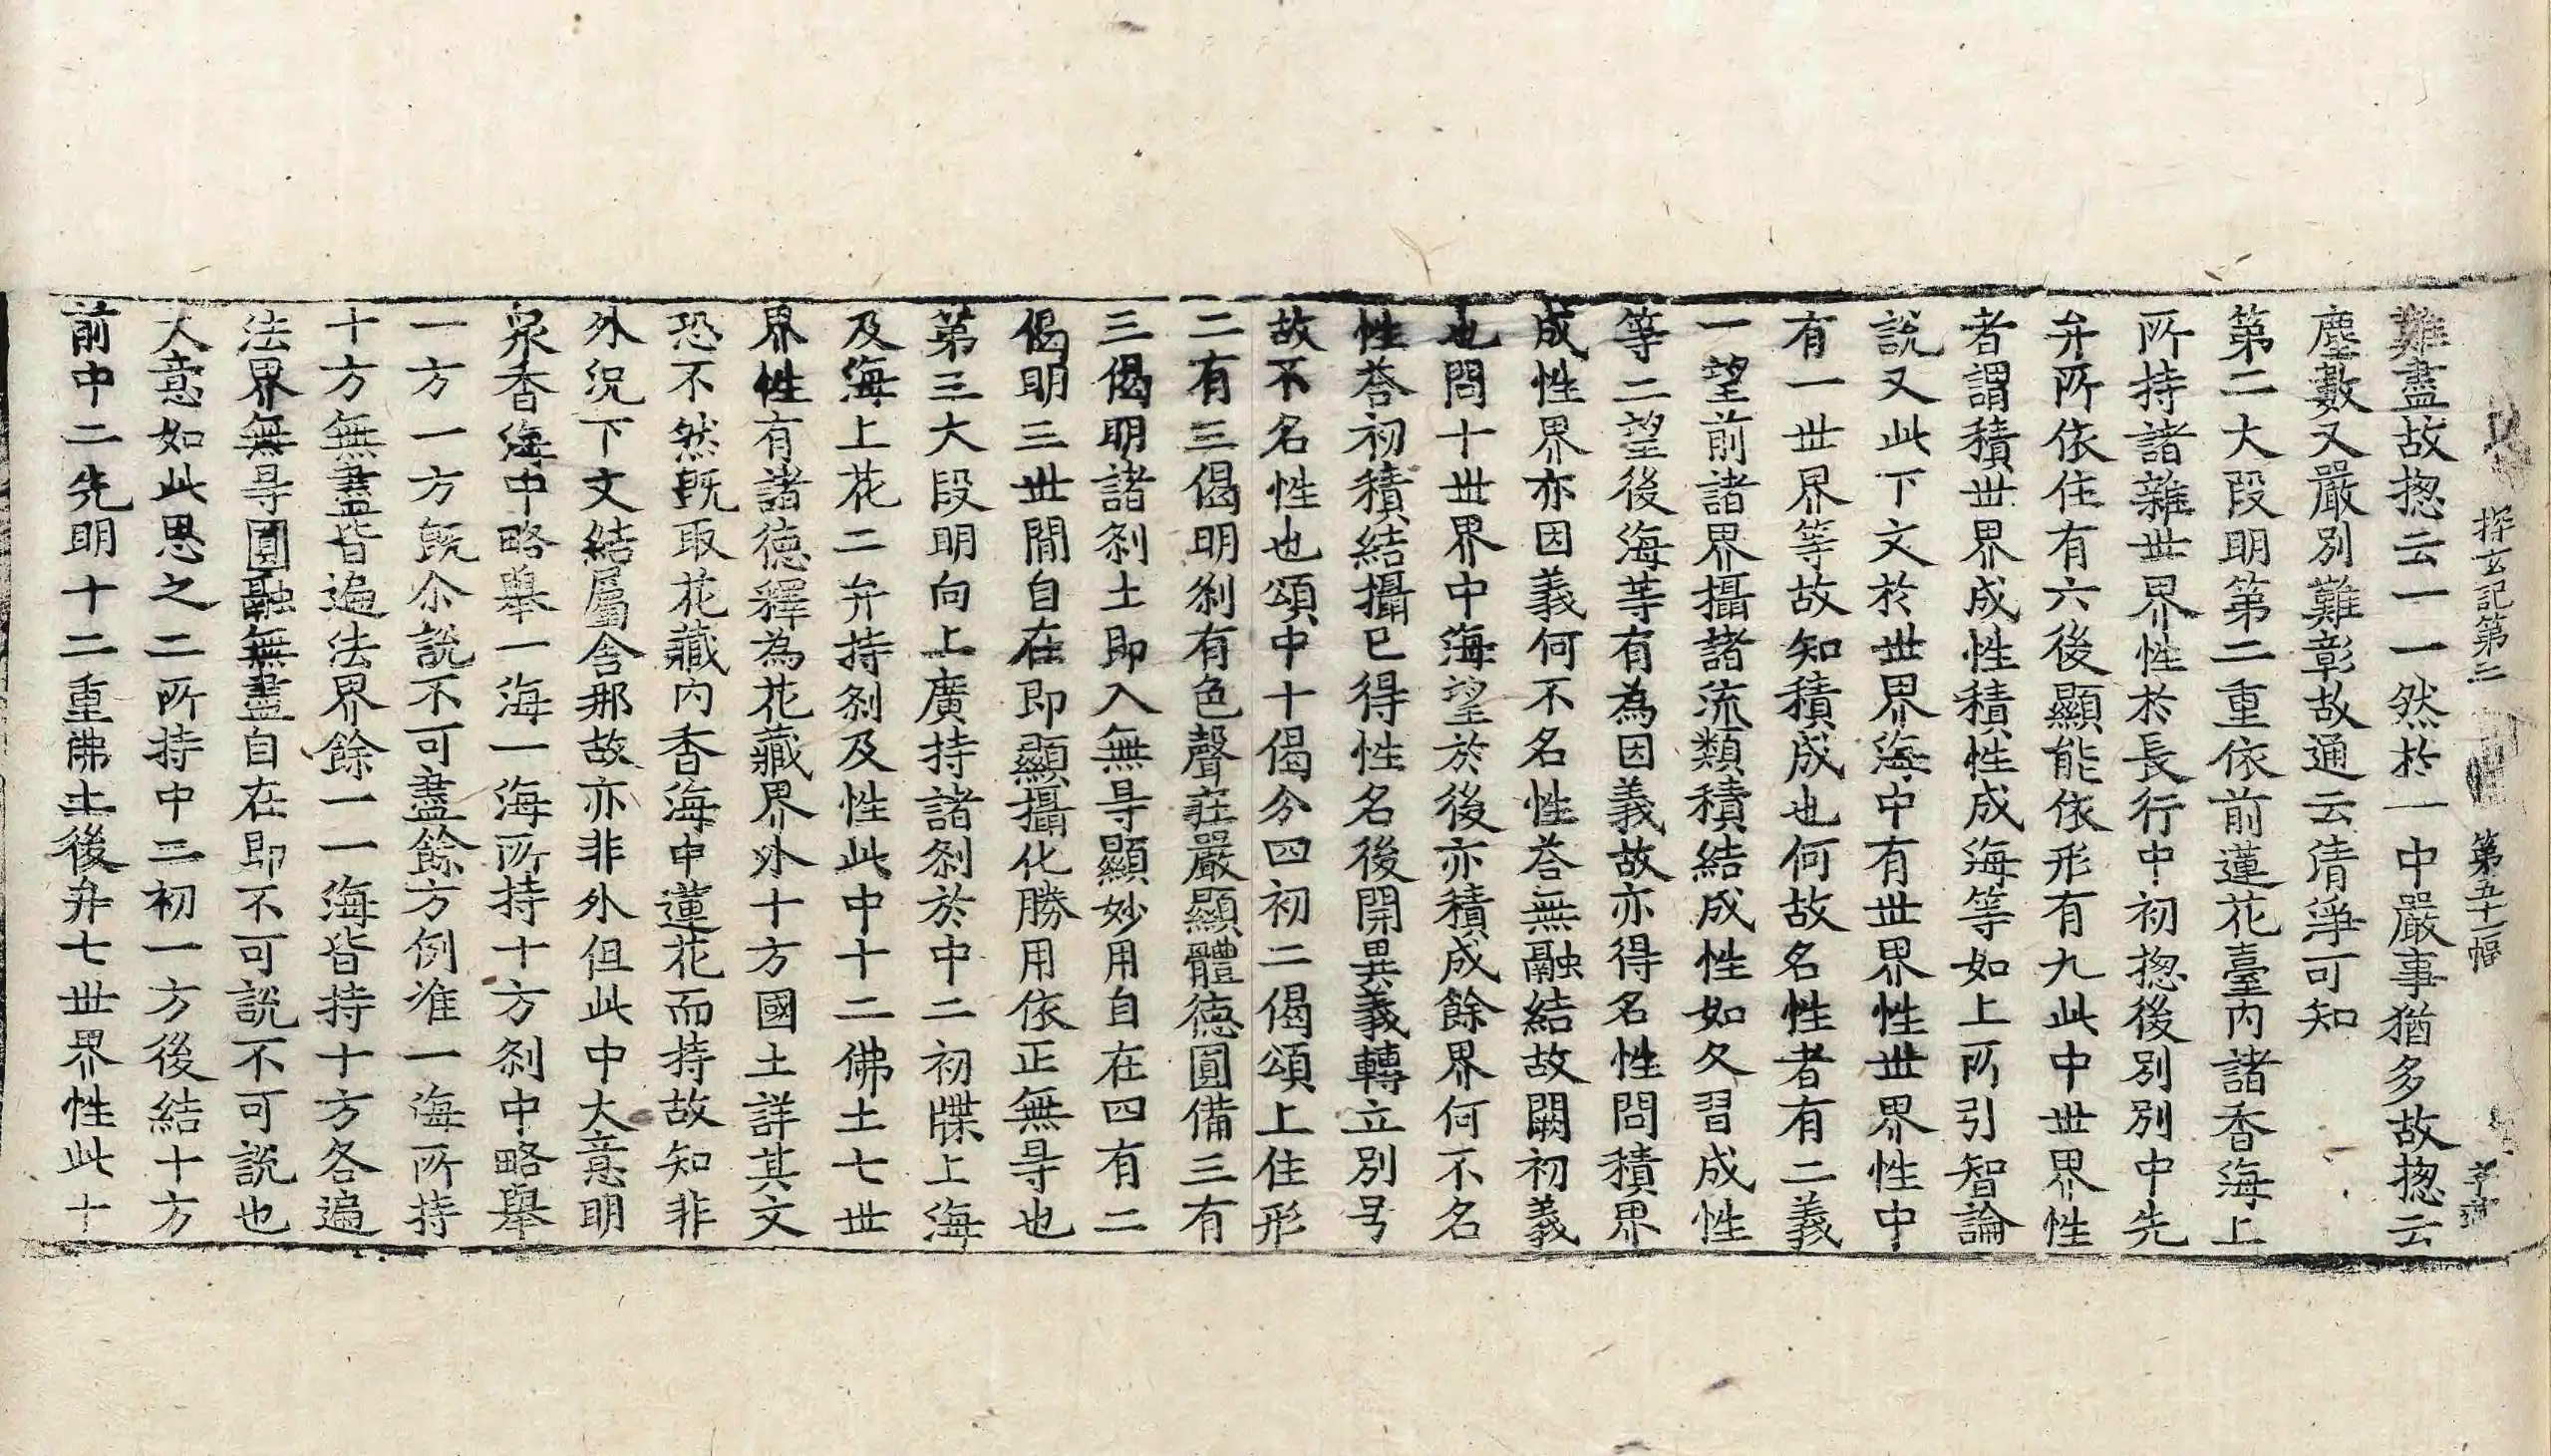 探玄記第三 第五十一幅
難盡故揔云一一然於一中嚴事猶多故揔云
塵數又嚴別難彰故通云清淨可知
第二大段明第二重依前蓮花臺內諸香海上
所持諸雜世界性於長行中初揔後別別中先
弁所依住有六後顯能依形有九此中世界性
者謂積世界成性積性成海等如上所引智論
說又此下文於世界海中有世界性世界性中
有一世界等故知積成也何故名性者有二義
一望前諸界攝諸流類積結成性如久習成性
等二望後海等有為因義故亦得名性問積界
成性界亦因義何不名性荅無融結故闕初義
也問十世界中海望於後亦積成餘界何不名
性荅初積結攝已得性名後開異義轉立別号
故不名性也頌中十偈分四初二偈頌上住形
二有三偈明剎有色聲莊嚴顯體德圓備三有
三偈明諸剎土即入無㝵顯妙用自在四有二
偈明三世間自在即顯攝化勝用依正無㝵也
第三大段明向上廣持諸剎於中二初牒上海
及海上花二弁持剎及性此中十二佛土七世
界性有諸德釋為花藏界外十方國土詳其文
恐不然既取花藏內香海中蓮花而持故知非
外況下文結屬舍那故亦非外但此中大意明
泉香海中略舉一海一海所持十方剎中略舉
一方一方既尒說不可盡餘方例准一海所持
十方無盡皆遍法界餘一一海皆持十方各遍
法界無㝵圓融無盡自在即不可說不可說也
大意如此思之二所持中二初一方後結十方
前中二先明十二重佛土後弁七世界性此十